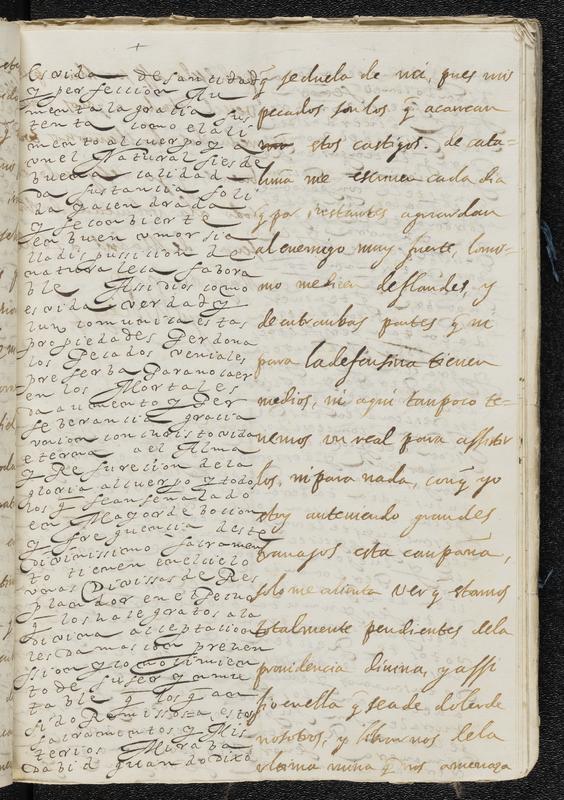 es vida de santidad
y perfeccion Au
menta la gracia sus
tenta como el ali
mento al cuerpo y a
con el Natural si es de
buena calidad
da sustancia soli
da y acendrada
y se combierte
en buen umor si a
lla dispusicion de
naturaleça fabora
ble Assi dios como
es vida verdad y
luz comunica estas
propiedades Perdona
los Pecados veniales
preserba Para no caer
en los Mortales
da aumento y Per
seberancia gracia
union con christo vida
eterna a el Alma
y Resureçion de la
gloria al cuerpo y todo
los q se an señalado
en Mayor deboçion
y frequencia deste
Divinissimo sacramen
to tienen en el cielo
unas Divissas de Res
plandor en el Pecho
q los haçe gratos a la
divina acceptacion
les da mas con prehen
sion y conosimien
to de su ser y inmu
table q los q a an
sido Remissos a estos
sacramentos y Mis
terios Miraba
Dabid quando Dixo
q se duela de mi, pues mis
pecados son los q acarrean
estos castigos. de cata=
luña me escriven cada dia
q por instantes aguardan
al enemigo muy fuerte, lo mis-
mo me dicen de flandes, y
de entrambas partes q ni
para la defensiva tienen
medios, ni aqui tampoco te=
nemos un real para assistir
los, ni para nada, con q yo
estoy antebiendo grandes
trabajos esta campaña,
solo me alienta ver q estamos
totalmente pendientes de la
providencia divina, y assi
fio en ella q se a de doler de
nosotros, y librarnos de la
ultima ruina q nos amenaza